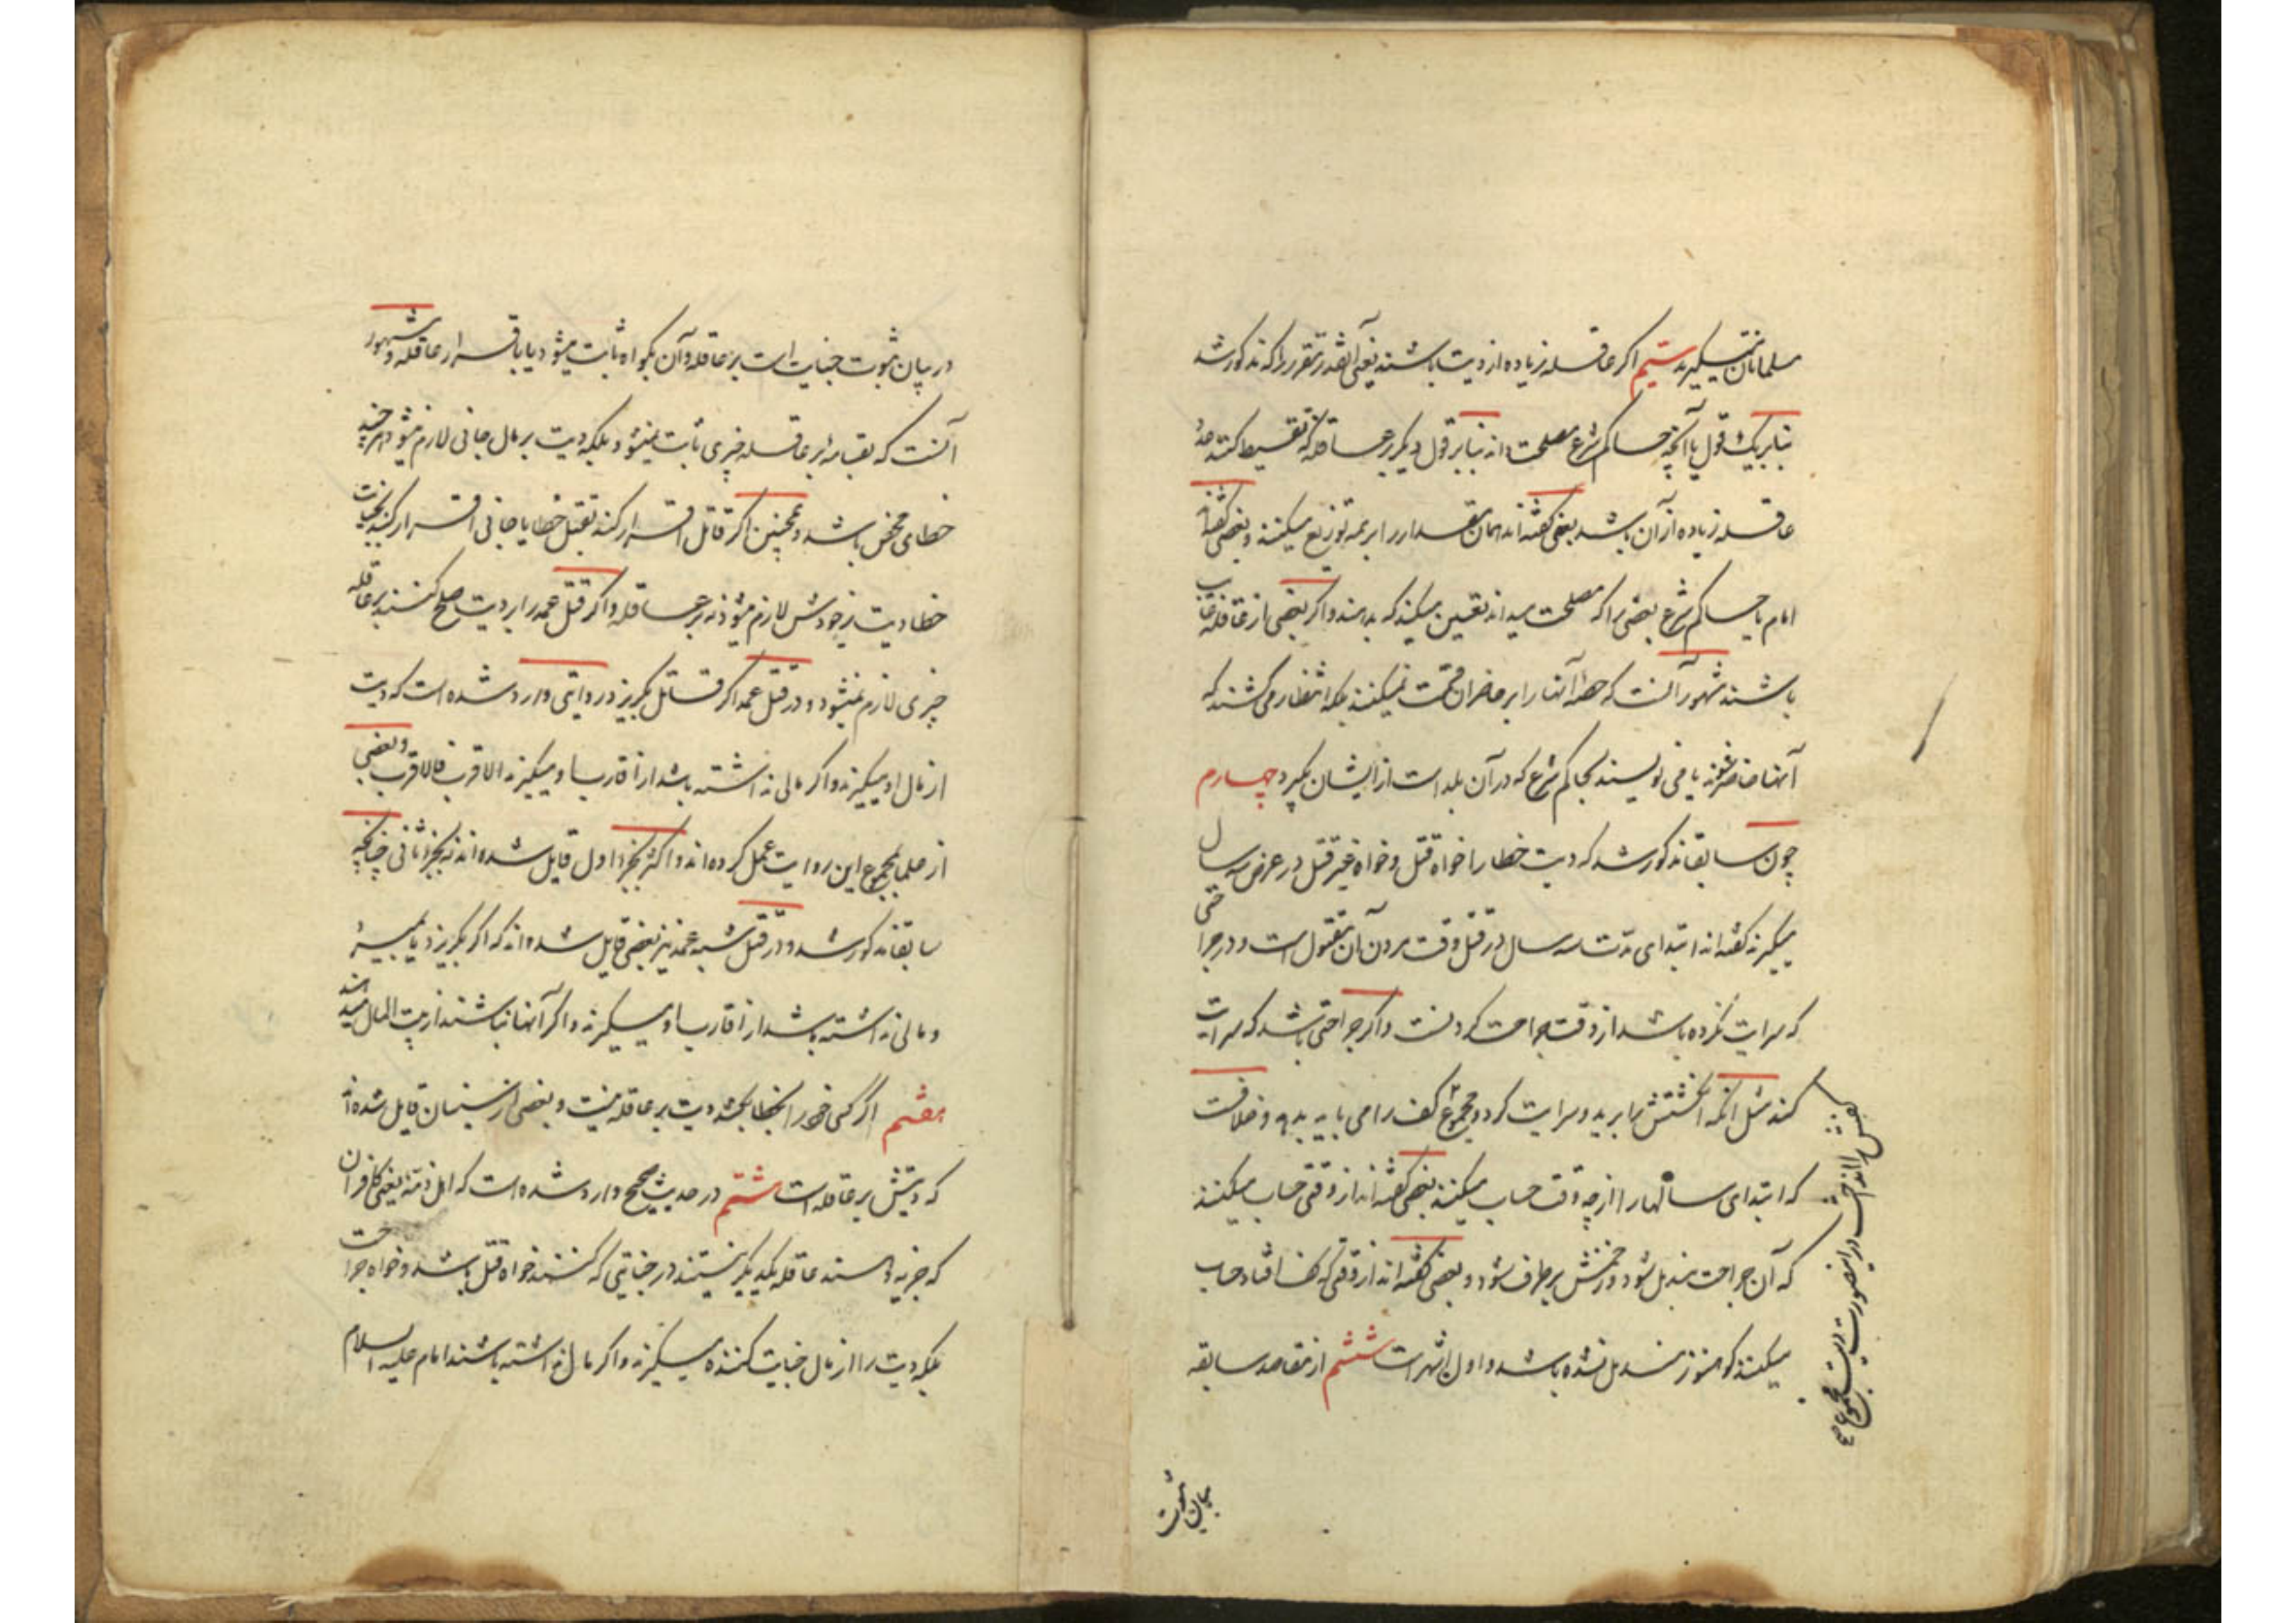 مسلمانان نمیگیرند سیم اگر عاقله زیاده از دیت باشند یعنی آنقدر مقرر را که مذکور شد
بنابر یک قول یا آنچه حاکم شرع مصلحت داند بنابر قول دیگر بر عاقله که تقسیط کنند عدد
عاقله زیاده از آن باشد بعضی گفته‌اند همان مقدار را بر همه توزیع میکنند و بعضی گفته‌اند
امام یا حاکم شرع بعضی را که مصلحت میداند تعیین میکند که بدهند و اگر بعضی از عاقله غایب
باشند مشهور آنست که حصه آنها را بر حاضران قسمت نمیکنند بلکه انتظار می کشند که
آنها حاضر شوند یا می نویسند بحاکم شرع که در آن بلد است از ایشان بگیرد چهارم
چون سابقا مذکور شد که دیت خطا را خواه قتل و خواه غیر قتل در عرض سه سال
میگیرند گفته‌اند ابتدای مدت سه سال در قتل وقت مردن آن مقتول است و در جراحتی
که سرایت نکرده باشد از وقت جراحت کردنست و اگر جراحتی باشد که سرایت
کند مثل آنکه انگشتش را برید و سرایت کرد و مجموع کف را می باید بدهد و خلافست
که ابتدای سالها را از چه وقت حساب میکنند بعضی گفته‌اند از وقتی حساب میکنند
که آن جراحت مندمل شود و زخمش برطرف شود و بعضی گفته‌اند از وقتی که کف افتاد حساب
میکنند گو هنوز مندمل نشده باشد و اول اشهر است ششم از مقاصد سابقه
کفش را انداخت در اینصورت دیت مجموع
بیان ثبوت
در بیان ثبوت جنایت است بر عاقله و آن بگواه ثابت میشود یا باقرار عاقله و مشهور
آنست که بقسامه بر عاقله چیزی ثابت نمیشود بلکه دیت بر مال جانی لازم میشود هر چند
خطای محض باشد و همچنین اگر قاتل اقرار کند بقتل خطا یا جانی اقرار کند بجنایت
خطا دیت بر خودش لازم میشود نه بر عاقله و اگر قتل عمد را بر دیت صلح کنند بر عاقله
چیزی لازم نمیشود و در قتل عمد اگر قاتل بگریزد روایتی وارد شده است که دیت
از مال او میگیرند و اگر مالی نداشته باشد از اقارب او میگیرند الاقرب فالاقرب و بعضی
از علما بمجموع این روایت عمل کرده‌اند و اکثر بجزو اول قایل شده‌اند نه بجزو ثانی چنانچه
سابقا مذکور شد و در قتل شبیه عمد نیز بعضی قایل شده‌اند که اگر بگریزد یا بمیرد
و مالی نداشته باشد از اقارب او میگیرند و اگر آنها نباشند از بیت المال میدهند
هفتم اگر کسی خود را بخطا بکشد دیت بر عاقله نیست و بعضی از سنیان قایل شده‌اند
که دیتش بر عاقله است هشتم در حدیث صحیح وارد شده است که اهل ذمه یعنی کافران
که جزیه دهند عاقله یکدیگر نیستند در جنایتی که کنند خواه قتل باشد و خواه جراحت
بلکه دیت را از مال جنایت کننده میگیرند و اگر مال نداشته باشند امام علیه السلام